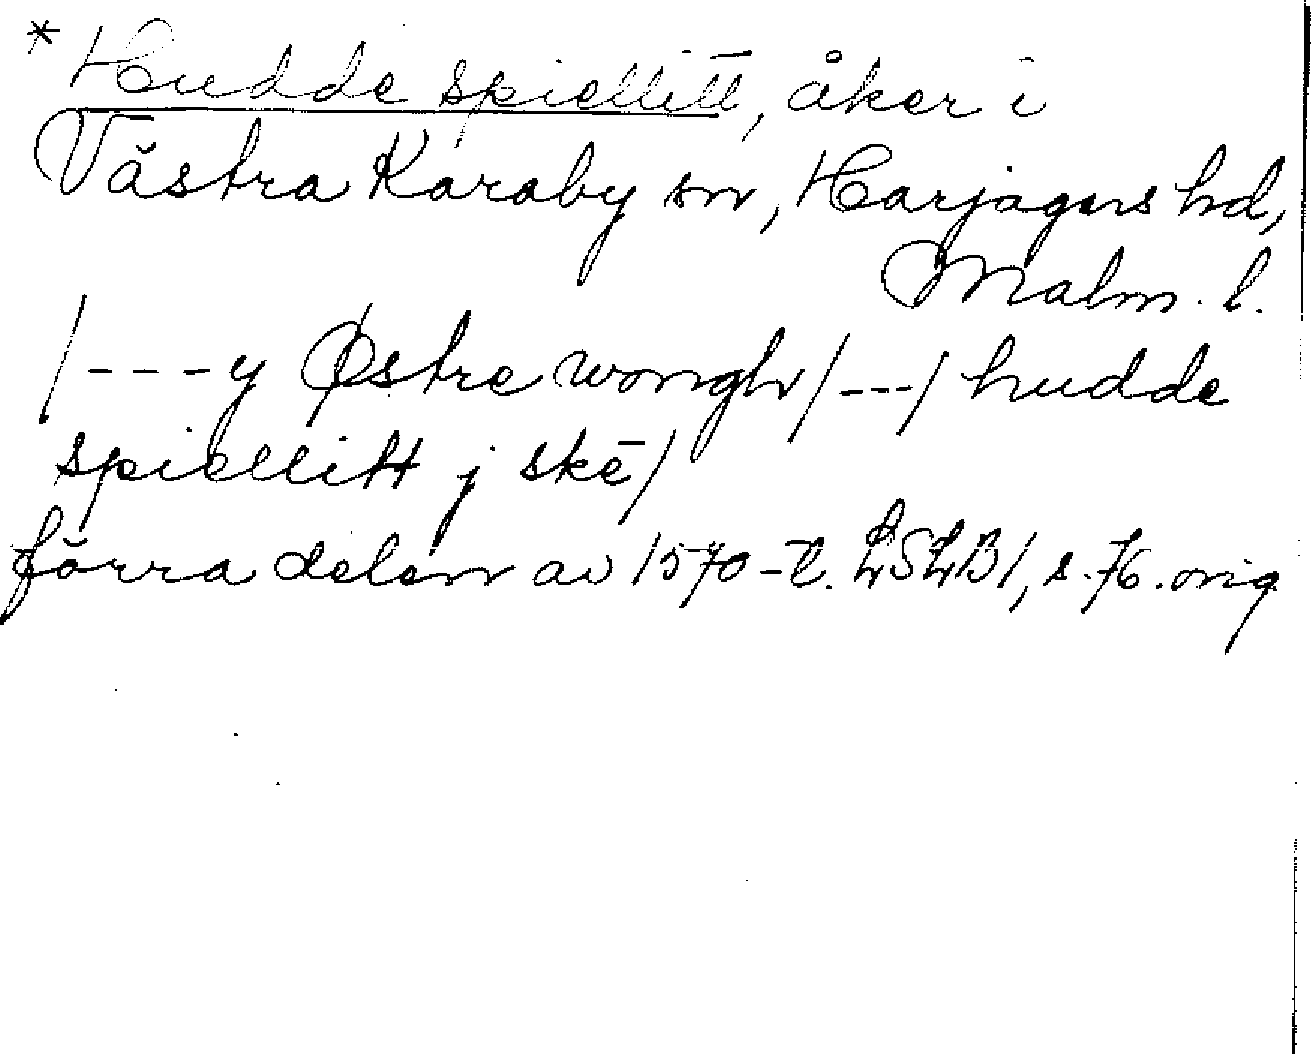 * Hudde spiellitt, åker i
Västra Karaby sn, Harjagers hd,
Malm. l.
/---y Østre wongh/---/ hudde
spiellitt j skē/
förra delen av 1570-t. LSLB1, s. 76. orig